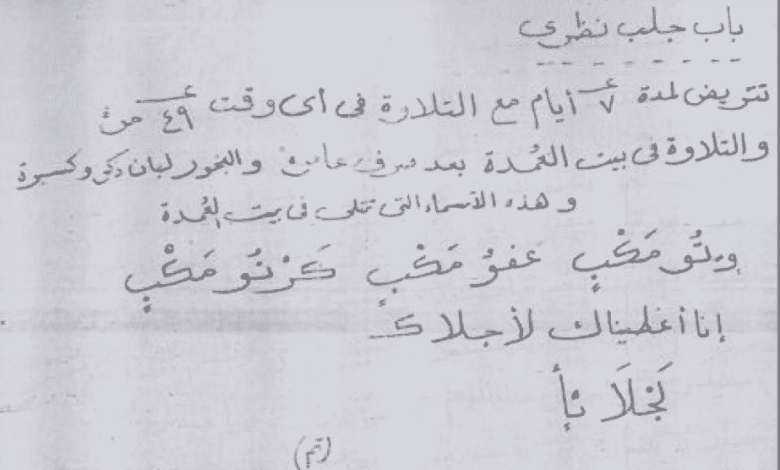 باب جلب نظرى
تتريض لمدة ٧ أيام مع التلاوة فى أى وقت ٤٩ مرة
والتلاوة فى بيت العُمدة بعد والبخور لبان ذكر وكسبرة
وهذه الأسماء التى تتلى فى بيت العُمدة
مَكْبٍ عفوُ مَكْبٍ كَرْتُو مَكْبٍ
إنا أعطيناك لأجلاك
(تم)